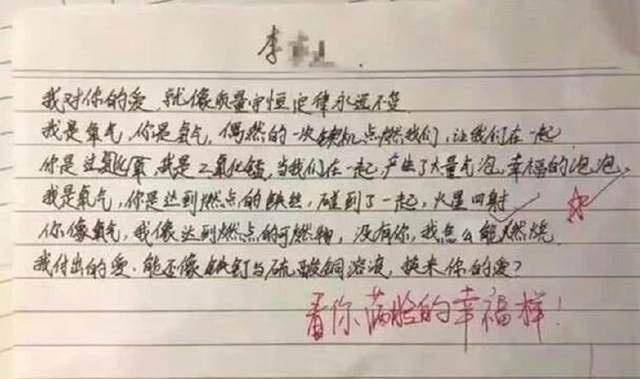 李
我对你的爱,就像质量守恒定律永远不变
我是氧气,你是氢气,偶然的一次契机点燃我们,让我们在一起
你是过氧化氢,我是二氧化锰,当我们在一起,产生了大量气泡,幸福的泡泡,
我是氧气,你是达到燃点的铁丝,碰到了一起,火星四射
你像氧气,我像达到燃点的可燃物,没有你,我怎么能燃烧
我付出的爱.能否像铁钉与硫酸铜溶液,换来你的爱?
看你满脸的幸福样!